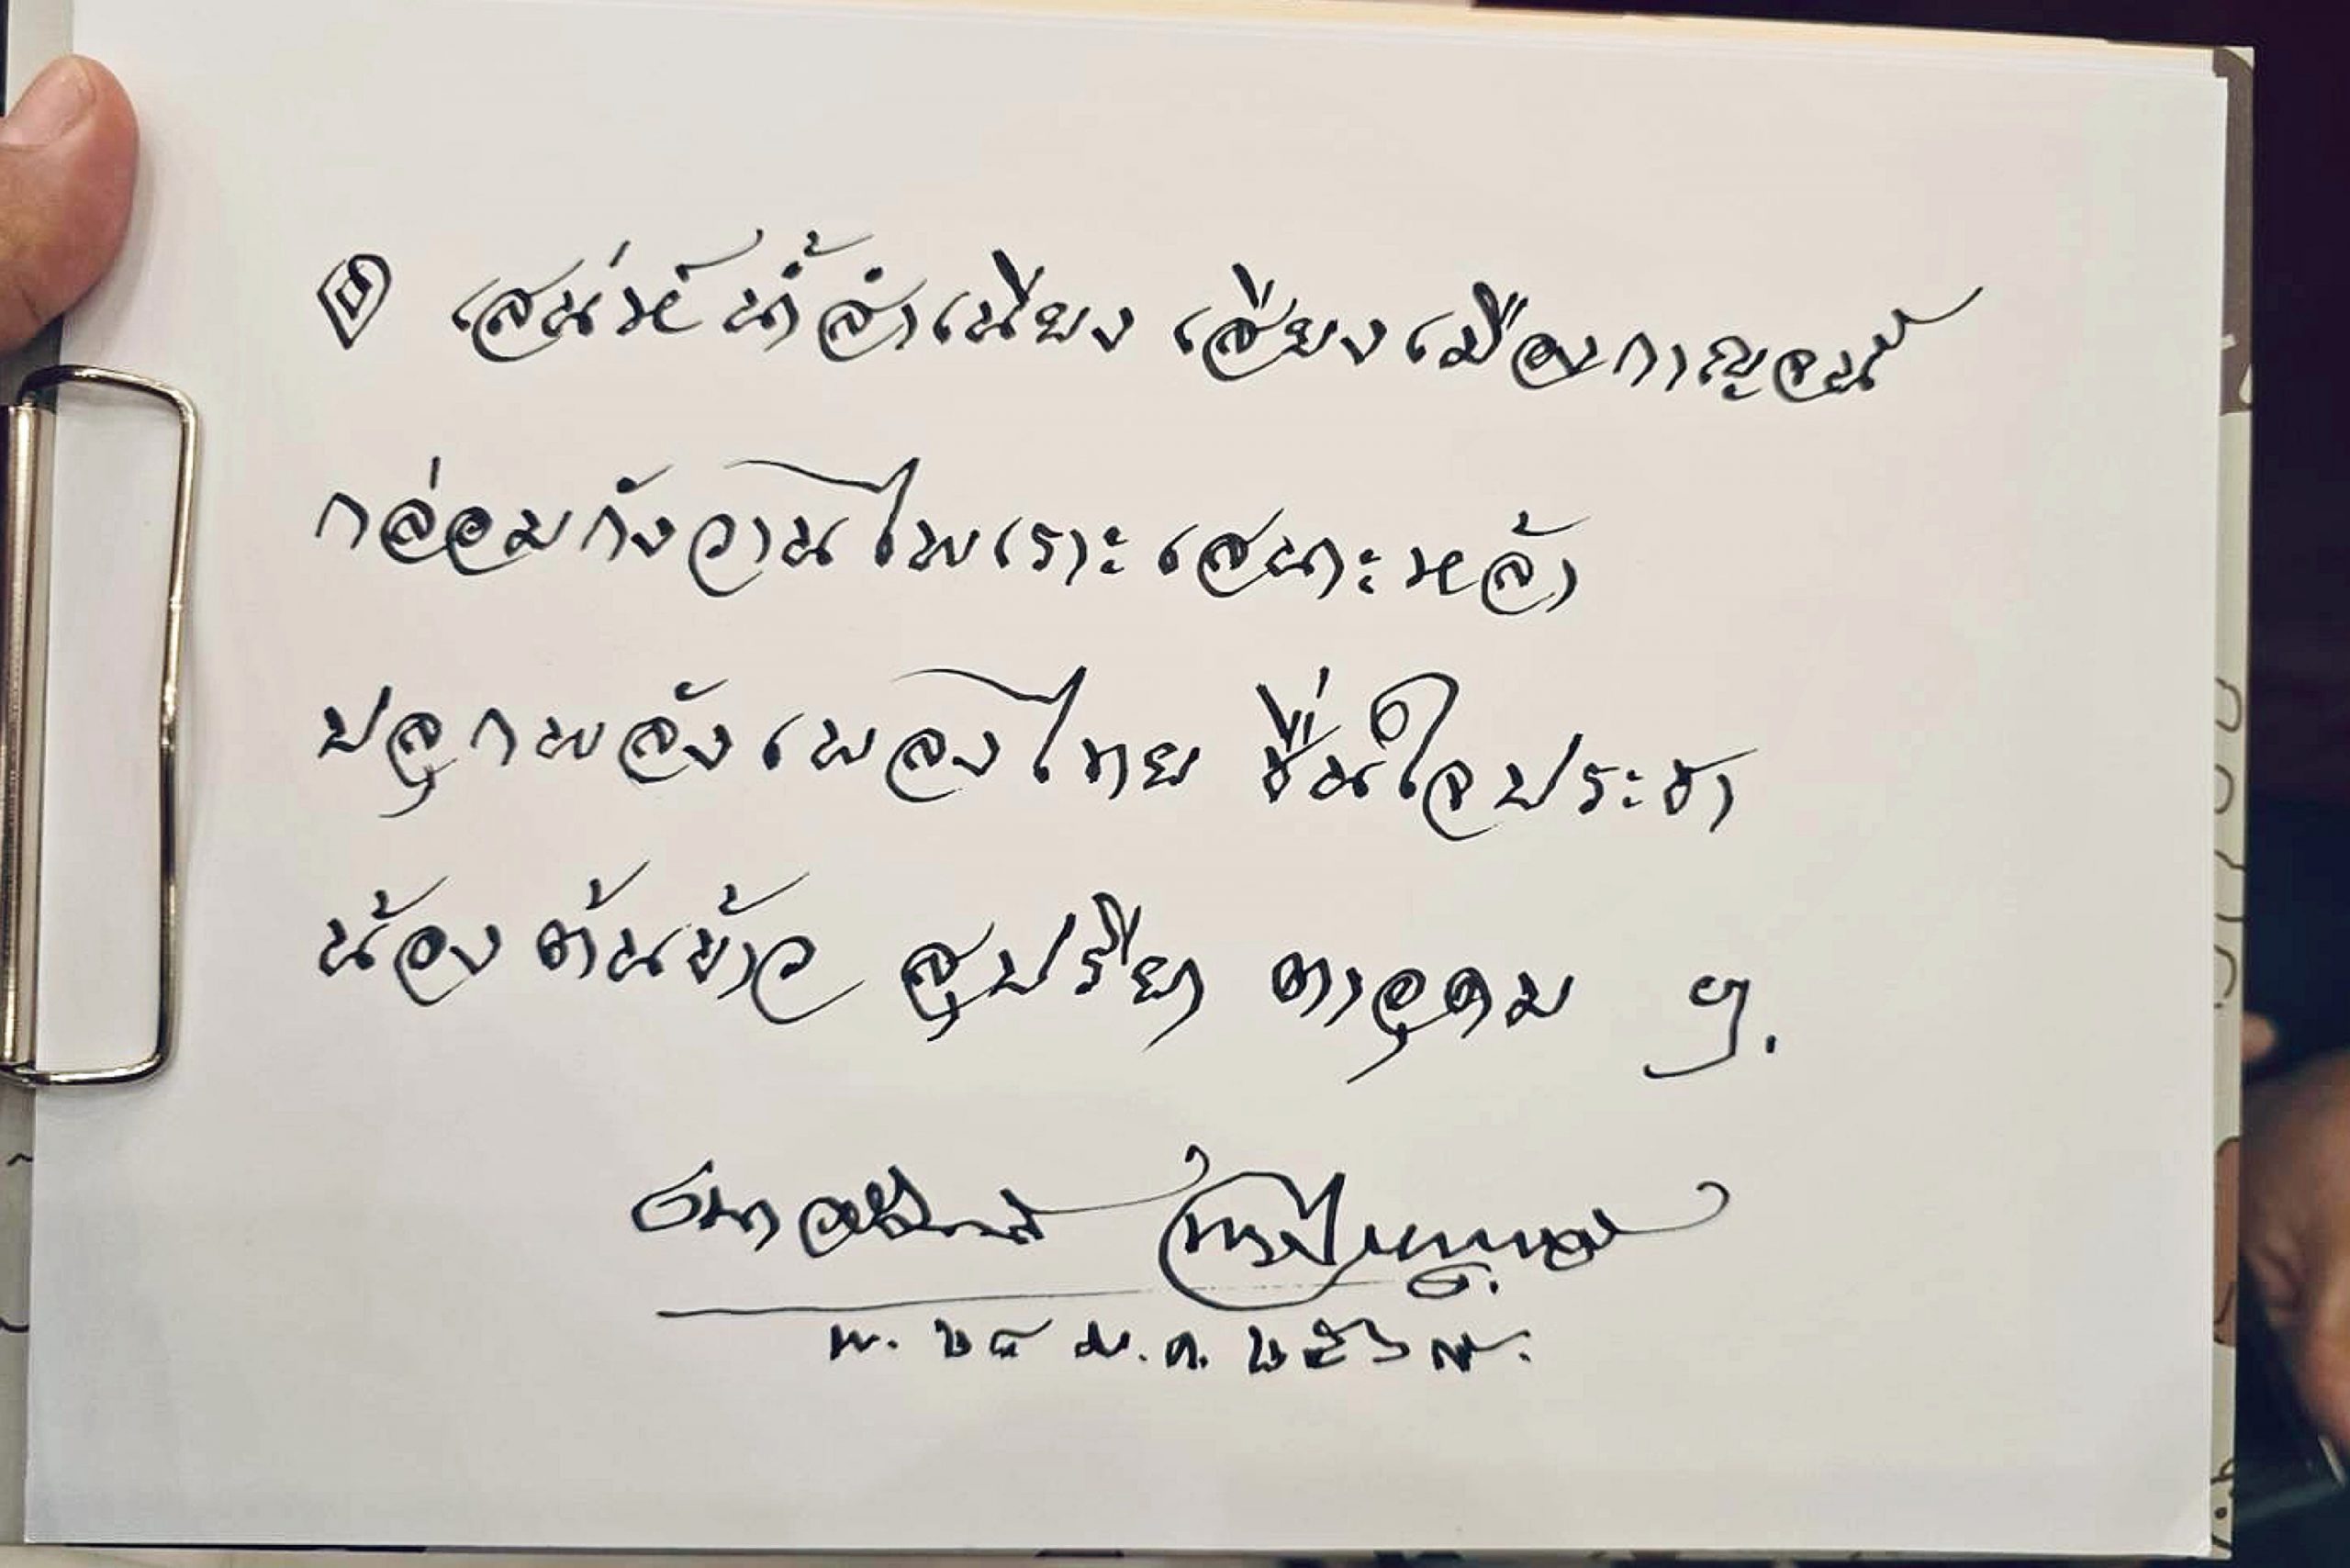 ๏ เสน่ห์น้ำสำเนียง เสียงเมืองกาญจน์
กล่อมกังวานไพเราะเสนาะหล้า
ปลุกพลังเพลงไทย ชื่นใจประชา
น้องต้นข้าว สุปรียา ตาอุดม ฯ.
พ. ๒๘ ม.ค. ๒๕๖๙.